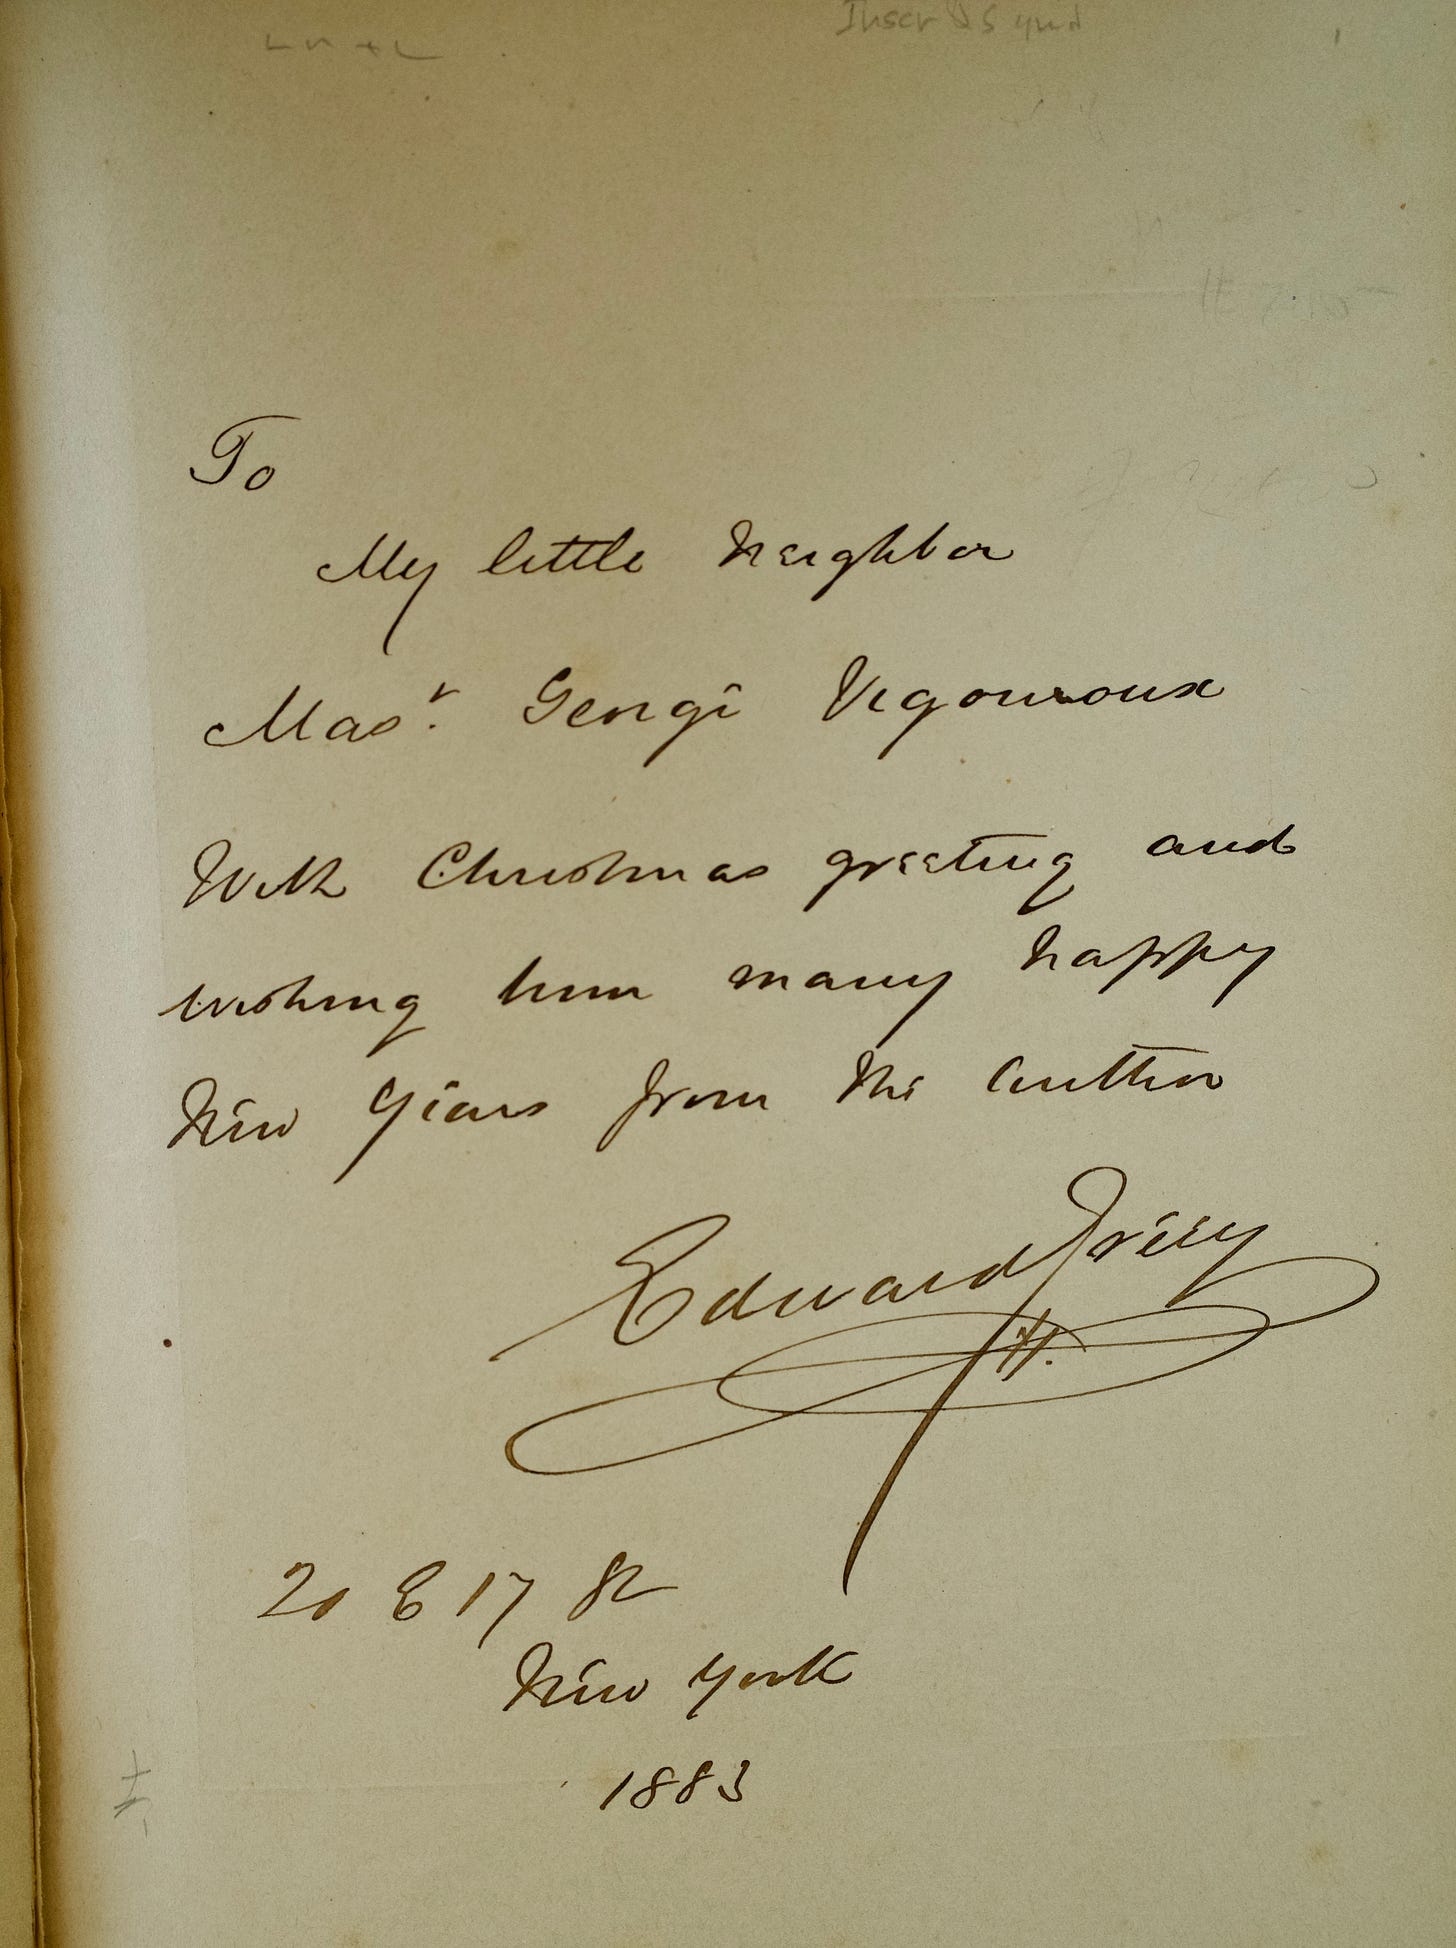 Inscr & Signd
To
My little Neighbor
Mas.r Georgi Vigouroux
With Christmas greeting and
wishing him many happy
New Years from the Author
Edward Greey
H.
20 E 17 St
New York
1883